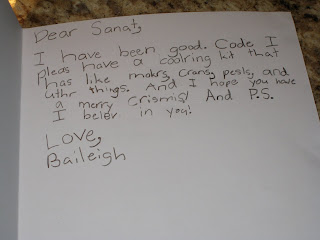 Dear Sanat,
I have been good. Code I
pleas have a coolring kit that
has like makrs, crans, pesls, and
uthr things. And I hope you have
a merry Crismis! And P.S.
I belev in you!
Love,
Baileigh